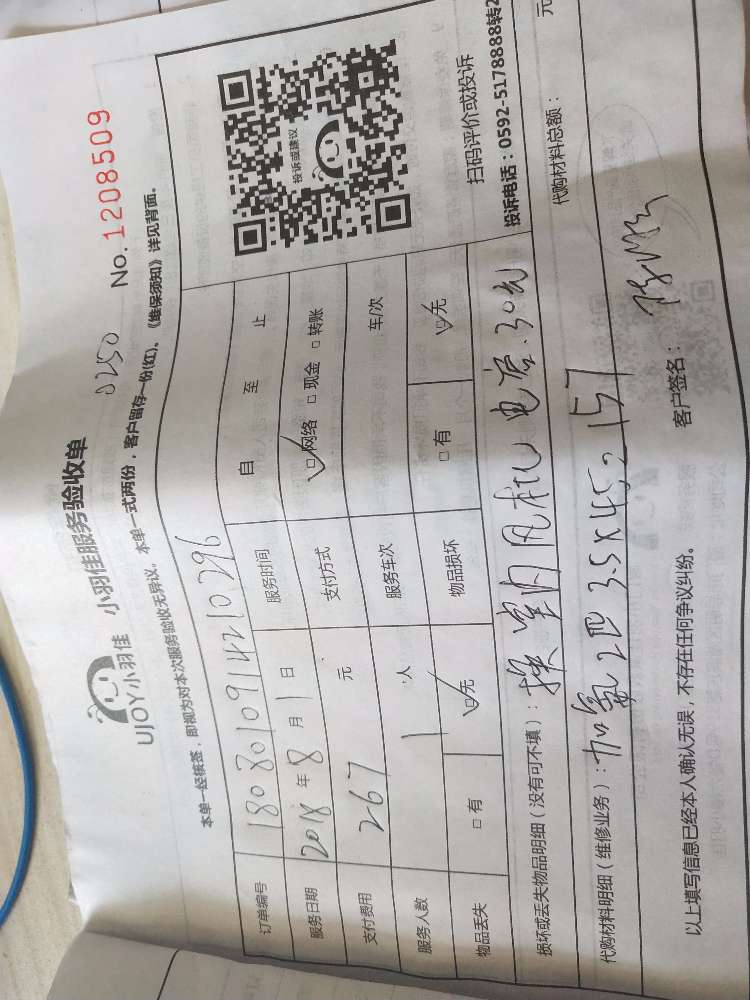 UJOY小羽佳 小羽佳服务验收单
0250 No. 1208509
本单一经核签，即视为对本次服务验收无异议，本单一式两份，客户留存一份(红)。《维保须知》详见背面。
订单编号 1808010914210296
服务日期 2018 年 8 月 1 日 服务时间 自 至 止
支付费用 267 元 支付方式 ☑网络 □现金 □转账
服务人数 1 人 服务车次 车/次
物品丢失 □有 ☑无 物品损坏 □有 ☑无
投诉或建议
扫码评价或投诉
投诉电话：0592-5178888转2
损坏或丢失物品明细（没有可不填）：换室内风机电容.30元
代购材料明细（维修业务）：加氟2匹 3.5×45=157 代购材料总额： 元
以上填写信息已经本人确认无误，不存在任何争议纠纷。 客户签名：